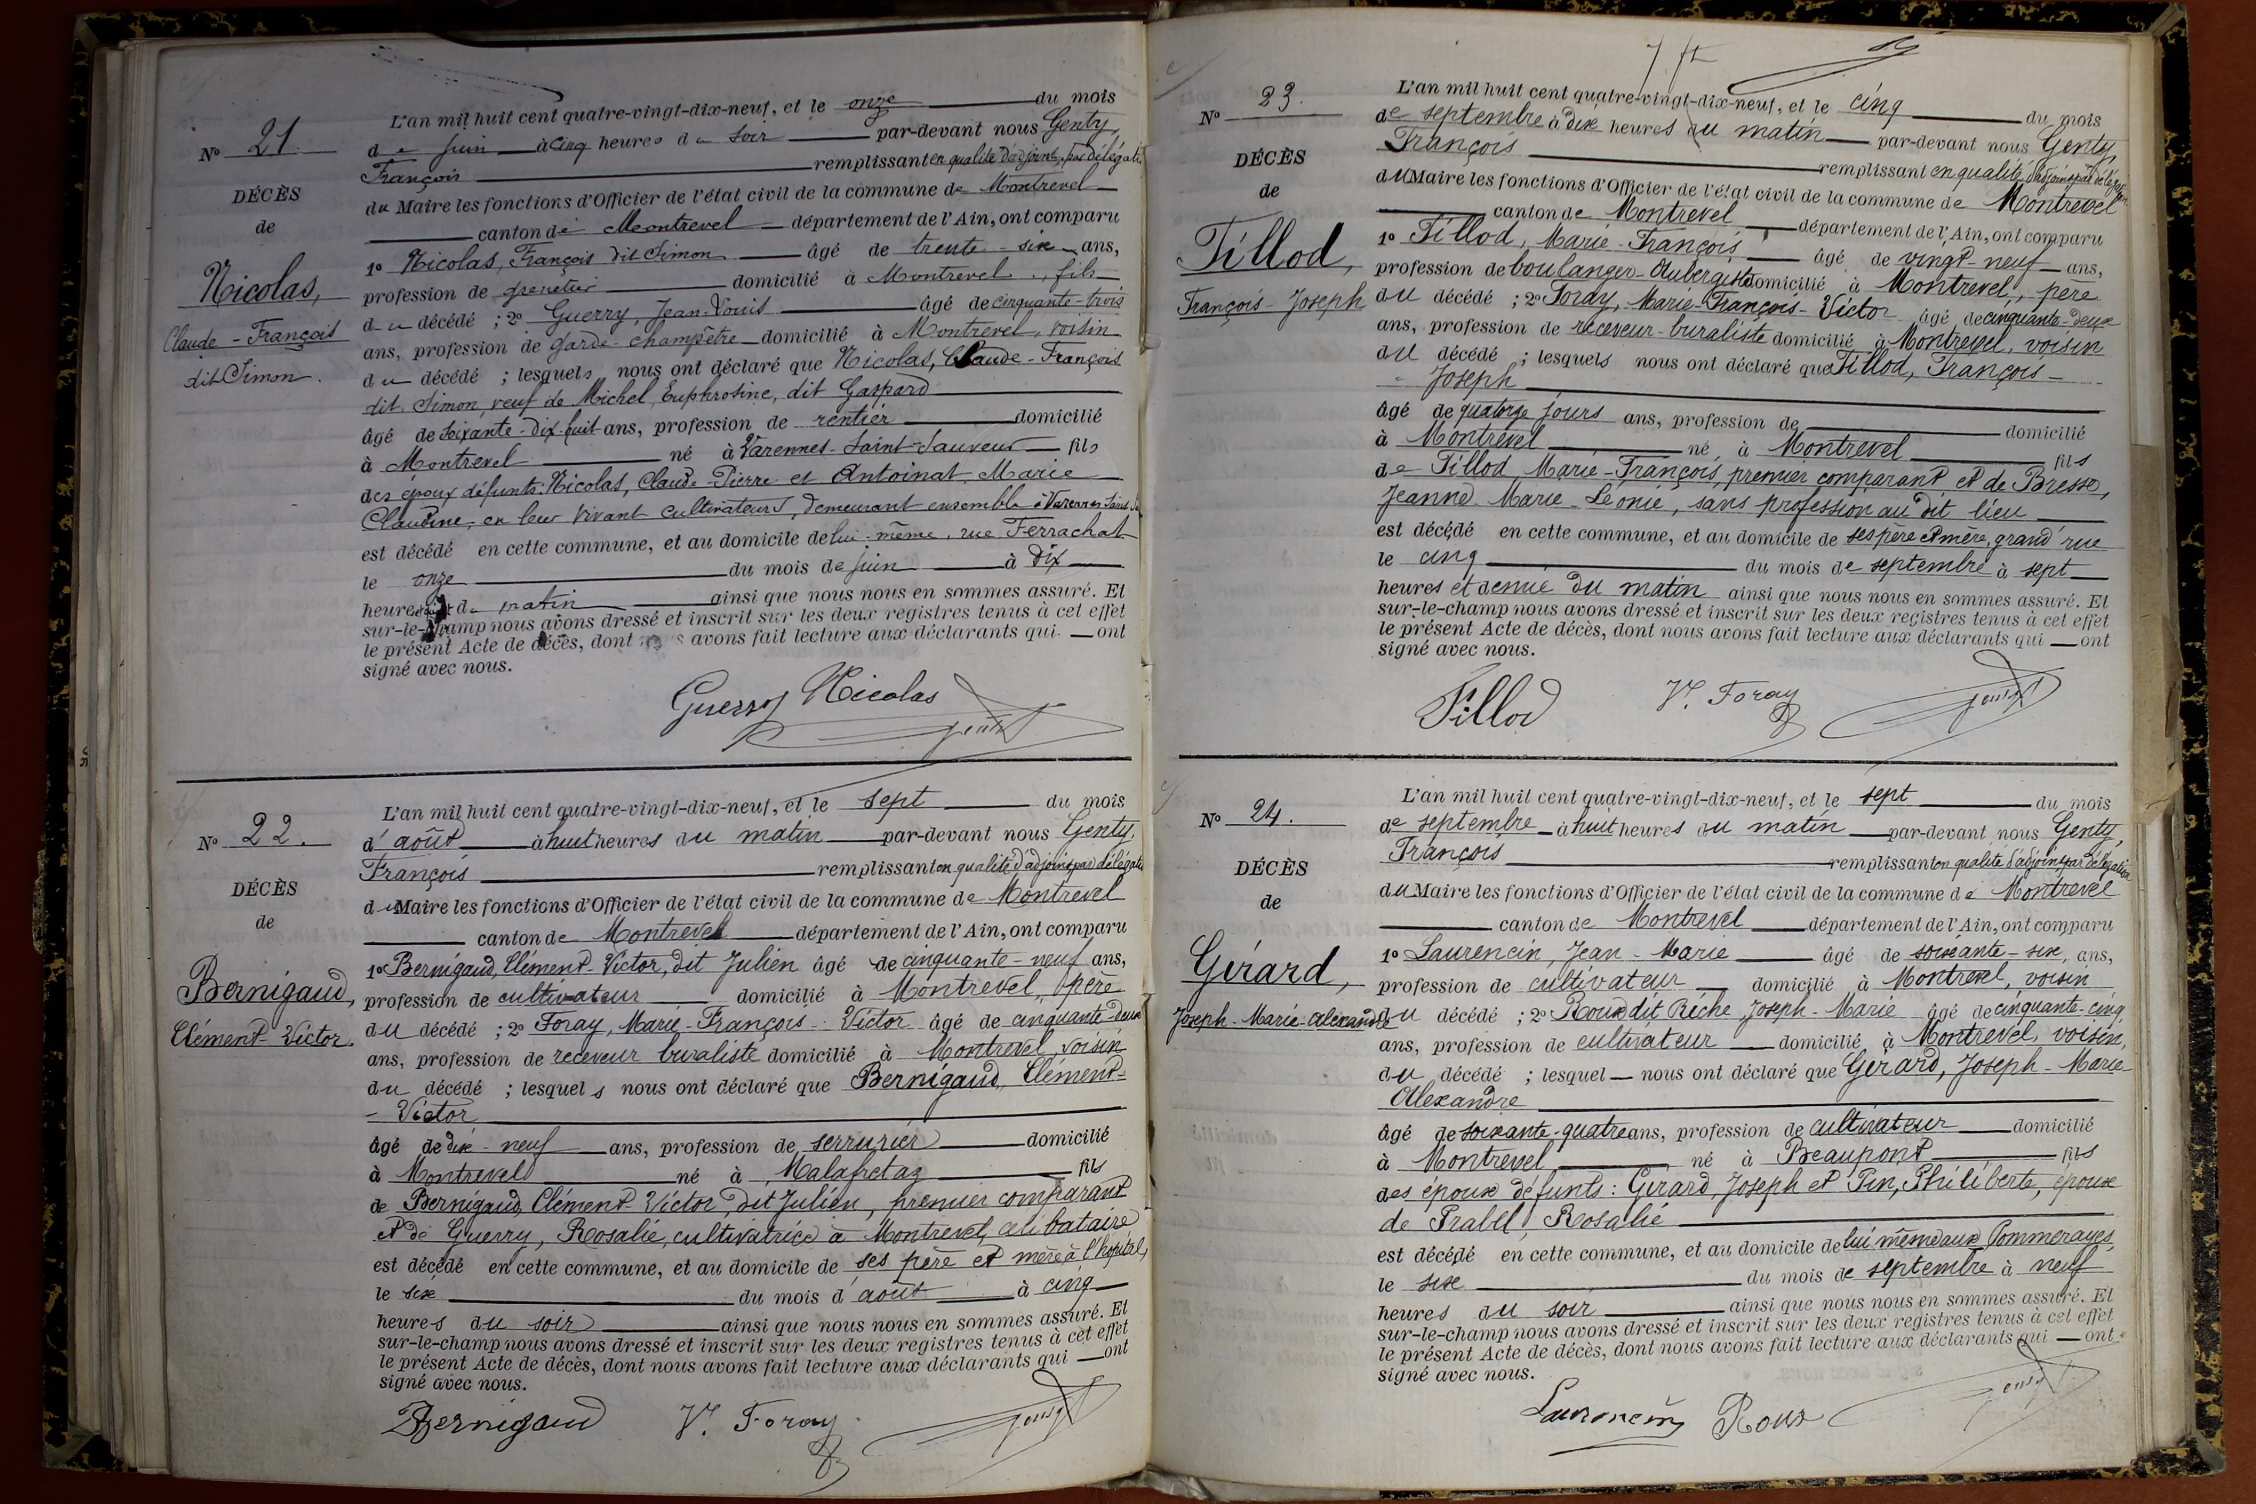 L'an mil huit cent quatre-vingt-dix-neuf, et le onze du mois
No 21. de juin à cinq heures du soir par-devant nous Genty,
François remplissant en qualité d'adjoint, par délégati
DÉCÈS
de
du Maire les fonctions d'Officier de l'état civil de la commune de Montrevel
canton de Montrevel département de l'Ain, ont comparu
1o Nicolas, François dit Simon âgé de trente-six ans,
Nicolas,
Claude-François
dit Simon.
profession de domicilié à Montrevel, fils
du décédé ; 2o Guerry, Jean-Louis âgé de cinquante-trois
ans, profession de garde-champêtre domicilié à Montrevel, voisin
du décédé ; lesquels nous ont déclaré que Nicolas, Claude-François
dit Simon, veuf de Michel, Euphrosine, dit Gaspard
âgé de soixante-dix-huit ans, profession de rentier domicilié
à Montrevel né à Varennes-Saint-Sauveur fils
des époux défunts: Nicolas, Claude-Pierre et Antoinat, Marie
Claudine, en leur vivant cultivateurs, demeurant ensemble à Varennes
est décédé en cette commune, et au domicile de lui-même, rue Ferrachat
le onze du mois de juin à dix
heures du matin ainsi que nous nous en sommes assuré. Et
sur-le-champ nous avons dressé et inscrit sur les deux registres tenus à cet effet
le présent Acte de décès, dont nous avons fait lecture aux déclarants qui ont
signé avec nous.
Guerry Nicolas
Genty
L'an mil huit cent quatre-vingt-dix-neuf, et le sept du mois
No 22. d'août à huit heures du matin par-devant nous Genty,
François remplissant en qualité d'adjoint, par délégati
DÉCÈS
de
du Maire les fonctions d'Officier de l'état civil de la commune de Montrevel
canton de Montrevel département de l'Ain, ont comparu
1o Bernigaud, Clément-Victor, dit Julien âgé de cinquante-neuf ans,
Bernigaud,
Clément-Victor.
profession de cultivateur domicilié à Montrevel, père
du décédé ; 2o Foray, Marie-François-Victor âgé de cinquante-deux
ans, profession de receveur buraliste domicilié à Montrevel, voisin
du décédé ; lesquels nous ont déclaré que Bernigaud, Clément-
-Victor
âgé de dix-neuf ans, profession de serrurier domicilié
à Montrevel né à Malafretaz fils
de Bernigaud, Clément-Victor, dit Julien, premier comparant
et de Guerry, Rosalie, cultivatrice à Montrevel, célibataire
est décédé en cette commune, et au domicile de ses père et mère à l'hopital,
le six du mois d'août à cinq
heures du soir ainsi que nous nous en sommes assuré. Et
sur-le-champ nous avons dressé et inscrit sur les deux registres tenus à cet effet
le présent Acte de décès, dont nous avons fait lecture aux déclarants qui ont
signé avec nous.
Bernigaud Vr. Foray
Genty
L'an mil huit cent quatre-vingt-dix-neuf, et le cinq du mois
No 23. de septembre à dix heures du matin par-devant nous Genty,
François remplissant en qualité d'adjoint, par délégation
DÉCÈS
de
du Maire les fonctions d'Officier de l'état civil de la commune de Montrevel
canton de Montrevel département de l'Ain, ont comparu
1o Tillod, Marie-François âgé de vingt-neuf ans,
Tillod,
François-Joseph
profession de boulanger-aubergiste domicilié à Montrevel, père
du décédé ; 2o Foray, Marie-François-Victor âgé de cinquante-deux
ans, profession de receveur-buraliste domicilié à Montrevel, voisin
du décédé ; lesquels nous ont déclaré que Tillod, François-
- Joseph
âgé de quatorze jours ans, profession de domicilié
à Montrevel né à Montrevel fils
de Tillod Marie-François, premier comparant et de Bresse,
Jeanne-Marie-Léonie, sans profession au dit lieu
est décédé en cette commune, et au domicile de ses père et mère, grand'rue
le cinq du mois de septembre à sept
heures et demie du matin ainsi que nous nous en sommes assuré. Et
sur-le-champ nous avons dressé et inscrit sur les deux registres tenus à cet effet
le présent Acte de décès, dont nous avons fait lecture aux déclarants qui ont
signé avec nous.
Tillod Vr. Foray
Genty
L'an mil huit cent quatre-vingt-dix-neuf, et le sept du mois
No 24. de septembre à huit heures du matin par-devant nous Genty,
François remplissant en qualité d'adjoint, par délégation
DÉCÈS
de
du Maire les fonctions d'Officier de l'état civil de la commune de Montrevel
canton de Montrevel département de l'Ain, ont comparu
1o Laurencin, Jean-Marie âgé de soixante-six ans,
Gérard,
Joseph-Marie-Alexandre
profession de cultivateur domicilié à Montrevel, voisin
du décédé ; 2o Roux dit Réche Joseph-Marie âgé de cinquante-cinq
ans, profession de cultivateur domicilié à Montrevel, voisin,
du décédé ; lesquel nous ont déclaré que Gérard, Joseph-Marie-
Alexandre
âgé de soixante-quatre ans, profession de cultivateur domicilié
à Montrevel né à Beaupont fils
des époux défunts: Gérard, Joseph et Pin, Philiberte, époux
de Prabel, Rosalie
est décédé en cette commune, et au domicile de lui même aux Pommerayes,
le six du mois de septembre à neuf
heures du soir ainsi que nous nous en sommes assuré. Et
sur-le-champ nous avons dressé et inscrit sur les deux registres tenus à cet effet
le présent Acte de décès, dont nous avons fait lecture aux déclarants qui ont
signé avec nous.
Laurencin Roux
Genty